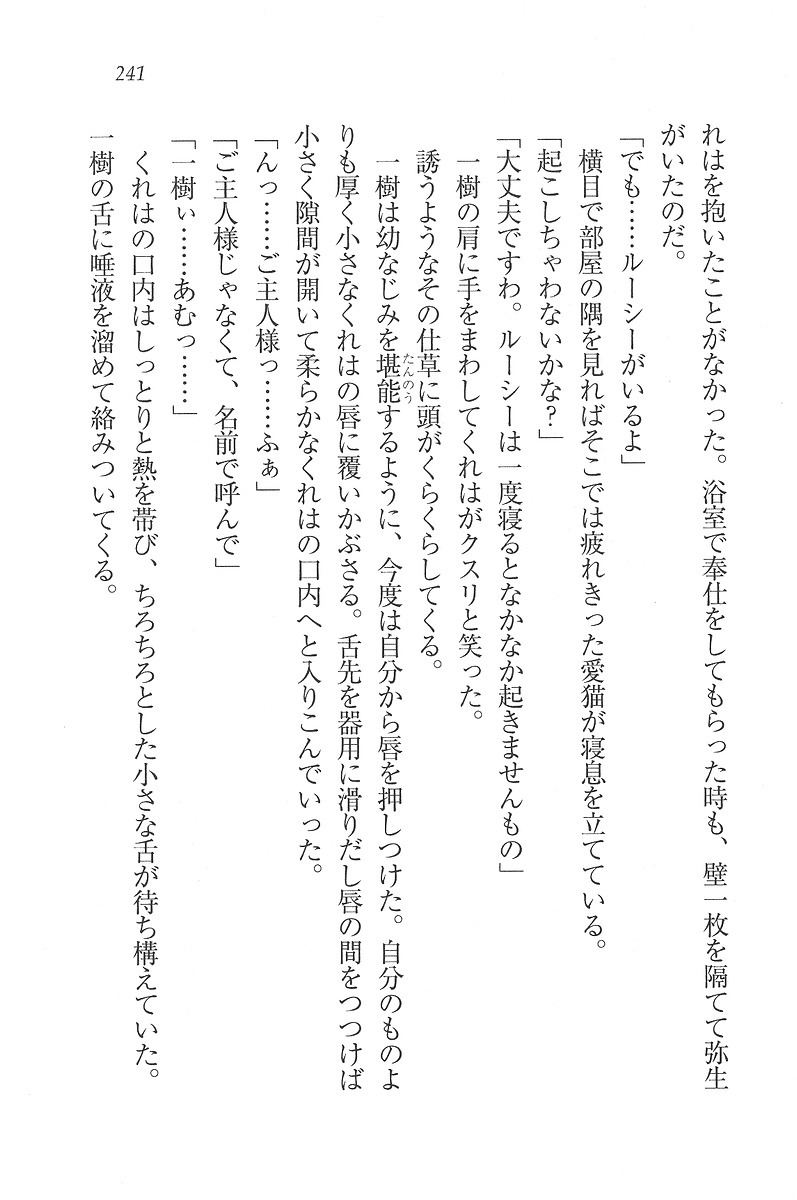 241
れはを抱いたことがなかった。浴室で奉仕をしてもらった時も、壁一枚を隔てて弥生
がいたのだ。
「でも……ルーシーがいるよ」
横目で部屋の隅を見ればそこでは疲れきった愛猫が寝息を立てている。
「起こしちゃわないかな？」
「大丈夫ですわ。ルーシーは一度寝るとなかなか起きませんもの」
一樹の肩に手をまわしてくれはがクスリと笑った。
誘うようなその仕草に頭がくらくらしてくる。
一樹は幼なじみを堪能たんのうするように、今度は自分から唇を押しつけた。自分のものよ
りも厚く小さなくれはの唇に覆いかぶさる。舌先を器用に滑りだし唇の間をつつけば
小さく隙間が開いて柔らかなくれはの口内へと入りこんでいった。
「んっ……ご主人様っ……ふぁ」
「ご主人様じゃなくて、名前で呼んで」
「一樹ぃ……あむっ……」
くれはの口内はしっとりと熱を帯び、ちろちろとした小さな舌が待ち構えていた。
一樹の舌に唾液を溜めて絡みついてくる。